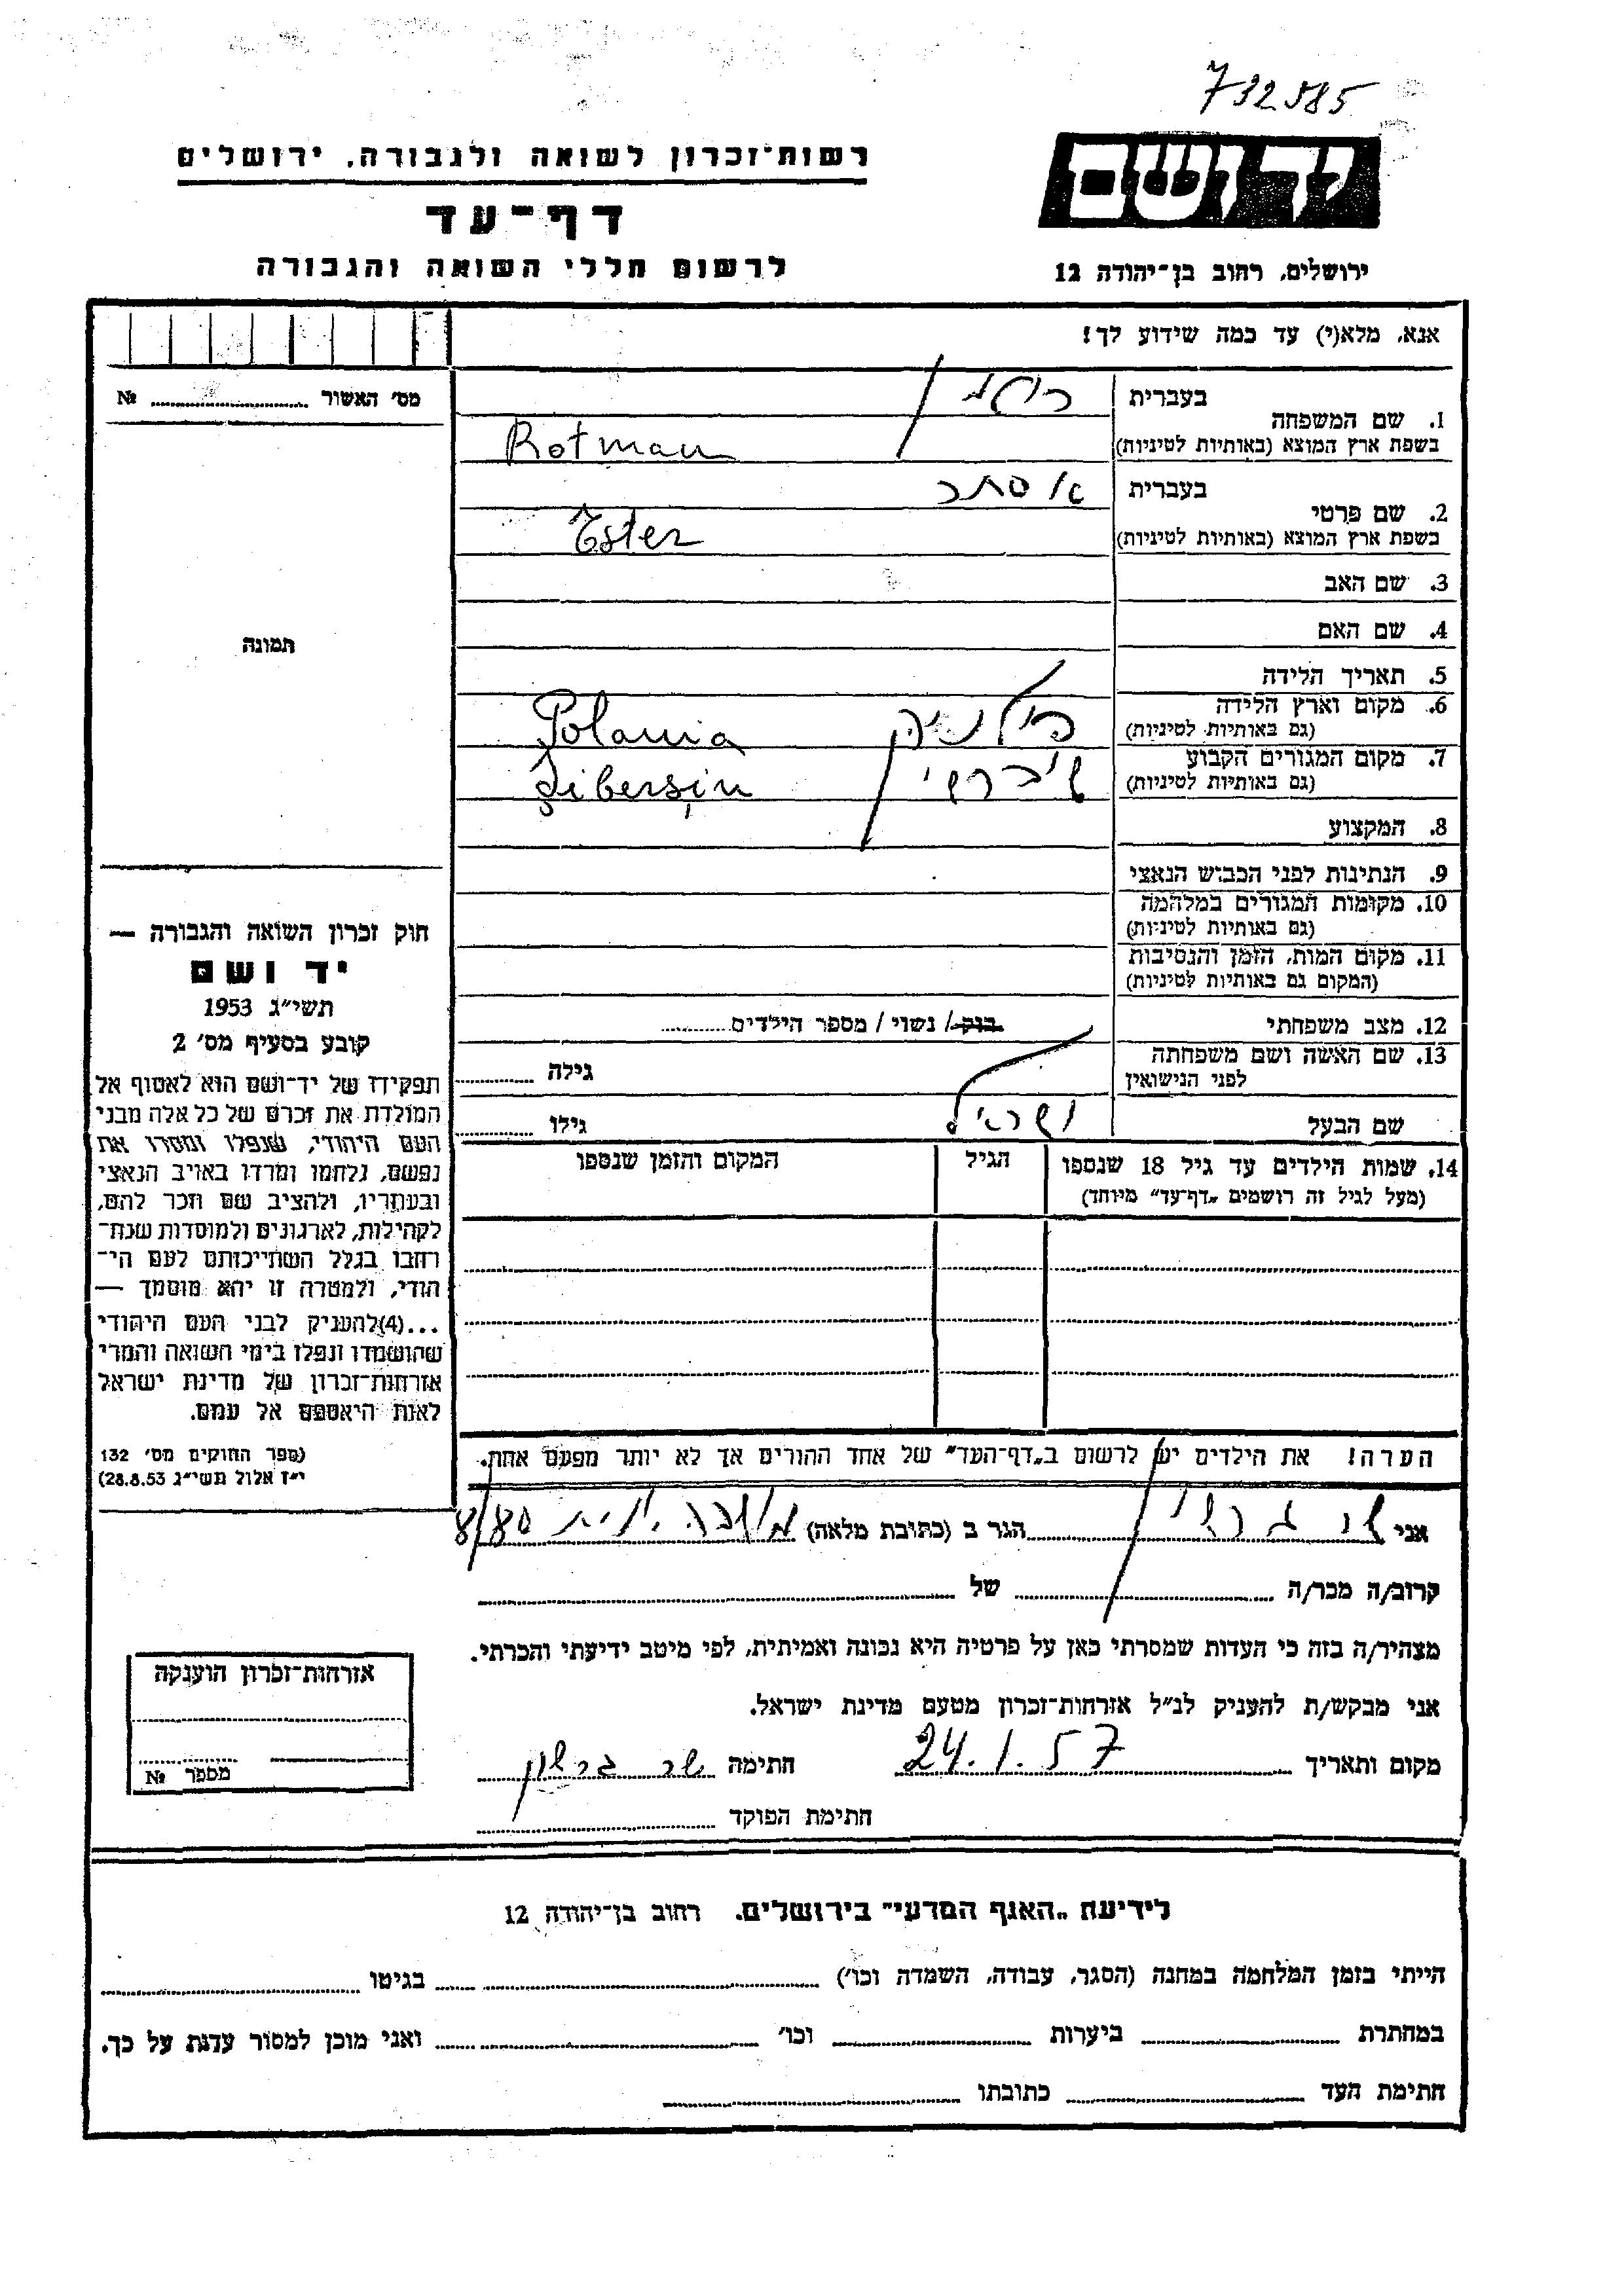 732585
רשות־זכרון לשואה ולגבורה, ירושלים
יד ושם
דף־עד
לרשום חללי השואה והגבורה
ירושלים, רחוב בן־יהודה 12
אנא, מלא(י) עד כמה שידוע לך!
מס׳ האשור № 
1. שם המשפחה
בעברית
בשפת ארץ המוצא (באותיות לטיניות) Rotman
2. שם פרטי
בעברית אסתר
בשפת ארץ המוצא (באותיות לטיניות) Ester
3. שם האב
4. שם האם
תמונה
5. תאריך הלידה
6. מקום וארץ הלידה
(גם באותיות לטיניות) Polania
7. מקום המגורים הקבוע
(גם באותיות לטיניות)
8. המקצוע
9. הנתינות לפני הכבוש הנאצי
10. מקומות המגורים במלחמה
(גם באותיות לטיניות)
11. מקום המות, הזמן והנסיבות
(המקום גם באותיות לטיניות)
12. מצב משפחתי רווק / נשוי / מספר הילדים
13. שם האשה ושם משפחתה
לפני הנישואין גילה
שם הבעל גילו
14. שמות הילדים עד גיל 18 שנספו הגיל המקום והזמן שנספו
(מעל לגיל זה רושמים „דף־עד” מיוחד)
חוק זכרון השואה והגבורה —
יד ושם
תשי״ג 1953
קובע בסעיף מס׳ 2
תפקידו של יד־ושם הוא לאסוף אל
המולדת את זכרם של כל אלה מבני
העם היהודי, שנפלו ומסרו את
נפשם, נלחמו ומרדו באויב הנאצי
ובעוזריו, ולהציב שם וזכר להם,
לקהילות, לארגונים ולמוסדות שנח־
רבו בגלל השתייכותם לעם הי־
הודי, ולמטרה זו יהא מוסמך —
...(4)להעניק לבני העם היהודי
שהושמדו ונפלו בימי השואה והמרי
אזרחות־זכרון של מדינת ישראל
לאות היאספם אל עמם.
(ספר החוקים מס׳ 132
י״ז אלול תשי״ג 28.8.53)
הערה! את הילדים יש לרשום ב„דף־העד” של אחד ההורים אך לא יותר מפעם אחת.
אני הגר ב (כתובת מלאה) 8/80
קרוב/ה מכר/ה של
מצהיר/ה בזה כי העדות שמסרתי כאן על פרטיה היא נכונה ואמיתית, לפי מיטב ידיעתי והכרתי.
אני מבקש/ת להעניק לנ״ל אזרחות־זכרון מטעם מדינת ישראל.
מקום ותאריך 24.1.57 חתימה
חתימת הפוקד
אזרחות־זכרון הוענקה
מספר №
לידיעת „האגף המדעי” בירושלים. רחוב בן־יהודה 12
הייתי בזמן המלחמה במחנה (הסגר, עבודה, השמדה וכו׳) בגיטו
במחתרת ביערות וכו׳ ואני מוכן למסור עדות על כך.
חתימת העד כתובתו